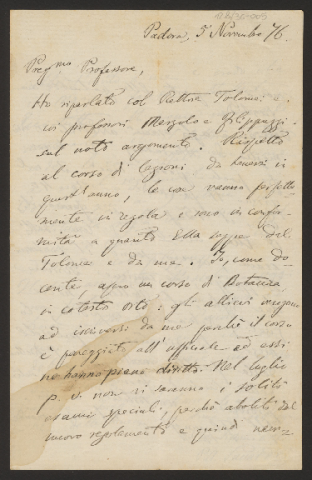 Padova, 5 Novembre 76.
Preg.mo Professore,
Ho riparlato col Rettore Tolomei e
coi professori Morgolo e Filippuzzi
sul noto argomento. Rispetto
al corso di lezioni da tenersi in
quest'anno, le cose vanno perfetta
mente in regola e sono in confor-
mità a quanto Ella seppe del
Tolomei e da me. Io, come do-
cente, apro un corso di Botanica
in cotesto Orto: gli allievi vengono
ad inscriversi da me perchè il corso
è pareggiato all'ufficiale ed essi
ne hanno pieno diritto. Nel luglio
p. v. non vi saranno i soliti
esami speciali, perchè aboliti dal
nuovo regolamento e quindi nem-